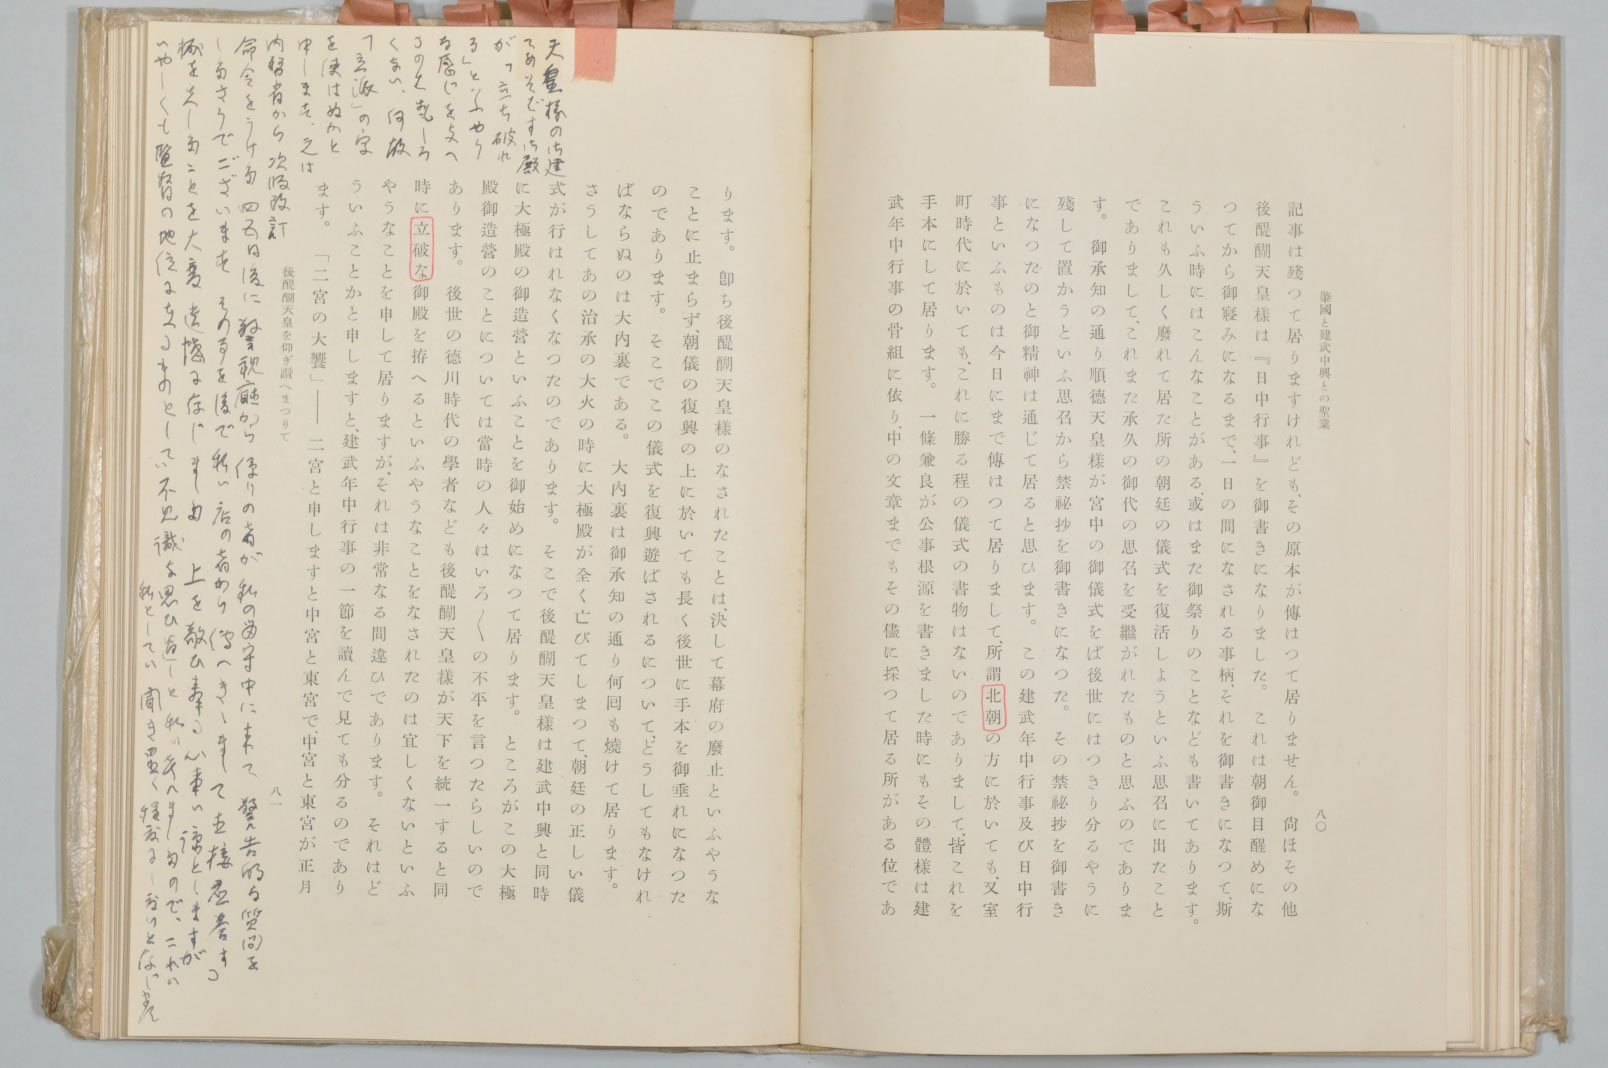 肇國と建武中興との聖業
八〇
記事は殘つて居りますけれども、その原本が傳はつて居りません。尙ほその他
後醍醐天皇樣は『日中行事』を御書きになりました。これは朝御目醒めにな
つてから御寢みになるまで、一日の間になされる事柄、それを御書きになつて、斯
ういふ時にはこんなことがある、或はまた御祭りのことなども書いてあります。
これも久しく廢れて居た所の朝廷の儀式を復活しようといふ思召に出たこと
でありまして、これまた承久の御代の思召を受繼がれたものと思ふのでありま
す。御承知の通り順德天皇樣が宮中の御儀式をば後世にはつきり分るやうに
殘して置かうといふ思召から禁祕抄を御書きになつた。その禁祕抄を御書き
になつたのと御精神は通じて居ると思ひます。この建武年中行事及び日中行
事といふものは今日にまで傳はつて居りまして、所謂北朝の方に於いても、又室
町時代に於いても、これに勝る程の儀式の書物はないのでありまして、皆これを
手本にして居ります。一條兼良が公事根源を書きました時にもその體樣は建
武年中行事の骨組に依り、中の文章までもその儘に採つて居る所がある位であ
ります。卽ち後醍醐天皇樣のなされたことは、決して幕府の廢止といふやうな
ことに止まらず、朝儀の復興の上に於いても長く後世に手本を御垂れになつた
のであります。そこでこの儀式を復興遊ばされるについて、どうしてもなけれ
ばならぬのは大內裏である。大內裏は御承知の通り何囘も燒けて居ります。
さうしてあの治承の大火の時に大極殿が全く亡びてしまつて、朝廷の正しい儀
式が行はれなくなつたのであります。そこで後醍醐天皇樣は建武中興と同時
に大極殿の御造營といふことを御始めになつて居ります。ところがこの大極
殿御造營のことについては當時の人々はいろ〱の不平を言つたらしいので
あります。後世の德川時代の學者なども後醍醐天皇樣が天下を統一すると同
時に立破な御殿を拵へるといふやうなことをなされたのは宜しくないといふ
やうなことを申して居りますが、それは非常なる間違ひであります。それはど
ういふことかと申しますと、建武年中行事の一節を讀んで見ても分るのであり
ます。「二宮の大饗」――二宮と申しますと中宮と東宮で、中宮と東宮が正月
後醍醐天皇を仰ぎ讚へまつりて
八一
天皇樣の御建
てあそばす御殿
が「立ち破れ
る」といふやう
な感じを與へ
るのは面しろ
くない、何故
「立派」の字
を使はぬかと
申します、之は
內務省から次版改訂
命令をうけた四五日後に警視廳から係りの者が私の留守中に来て警告的な質問を
しなさうでございます